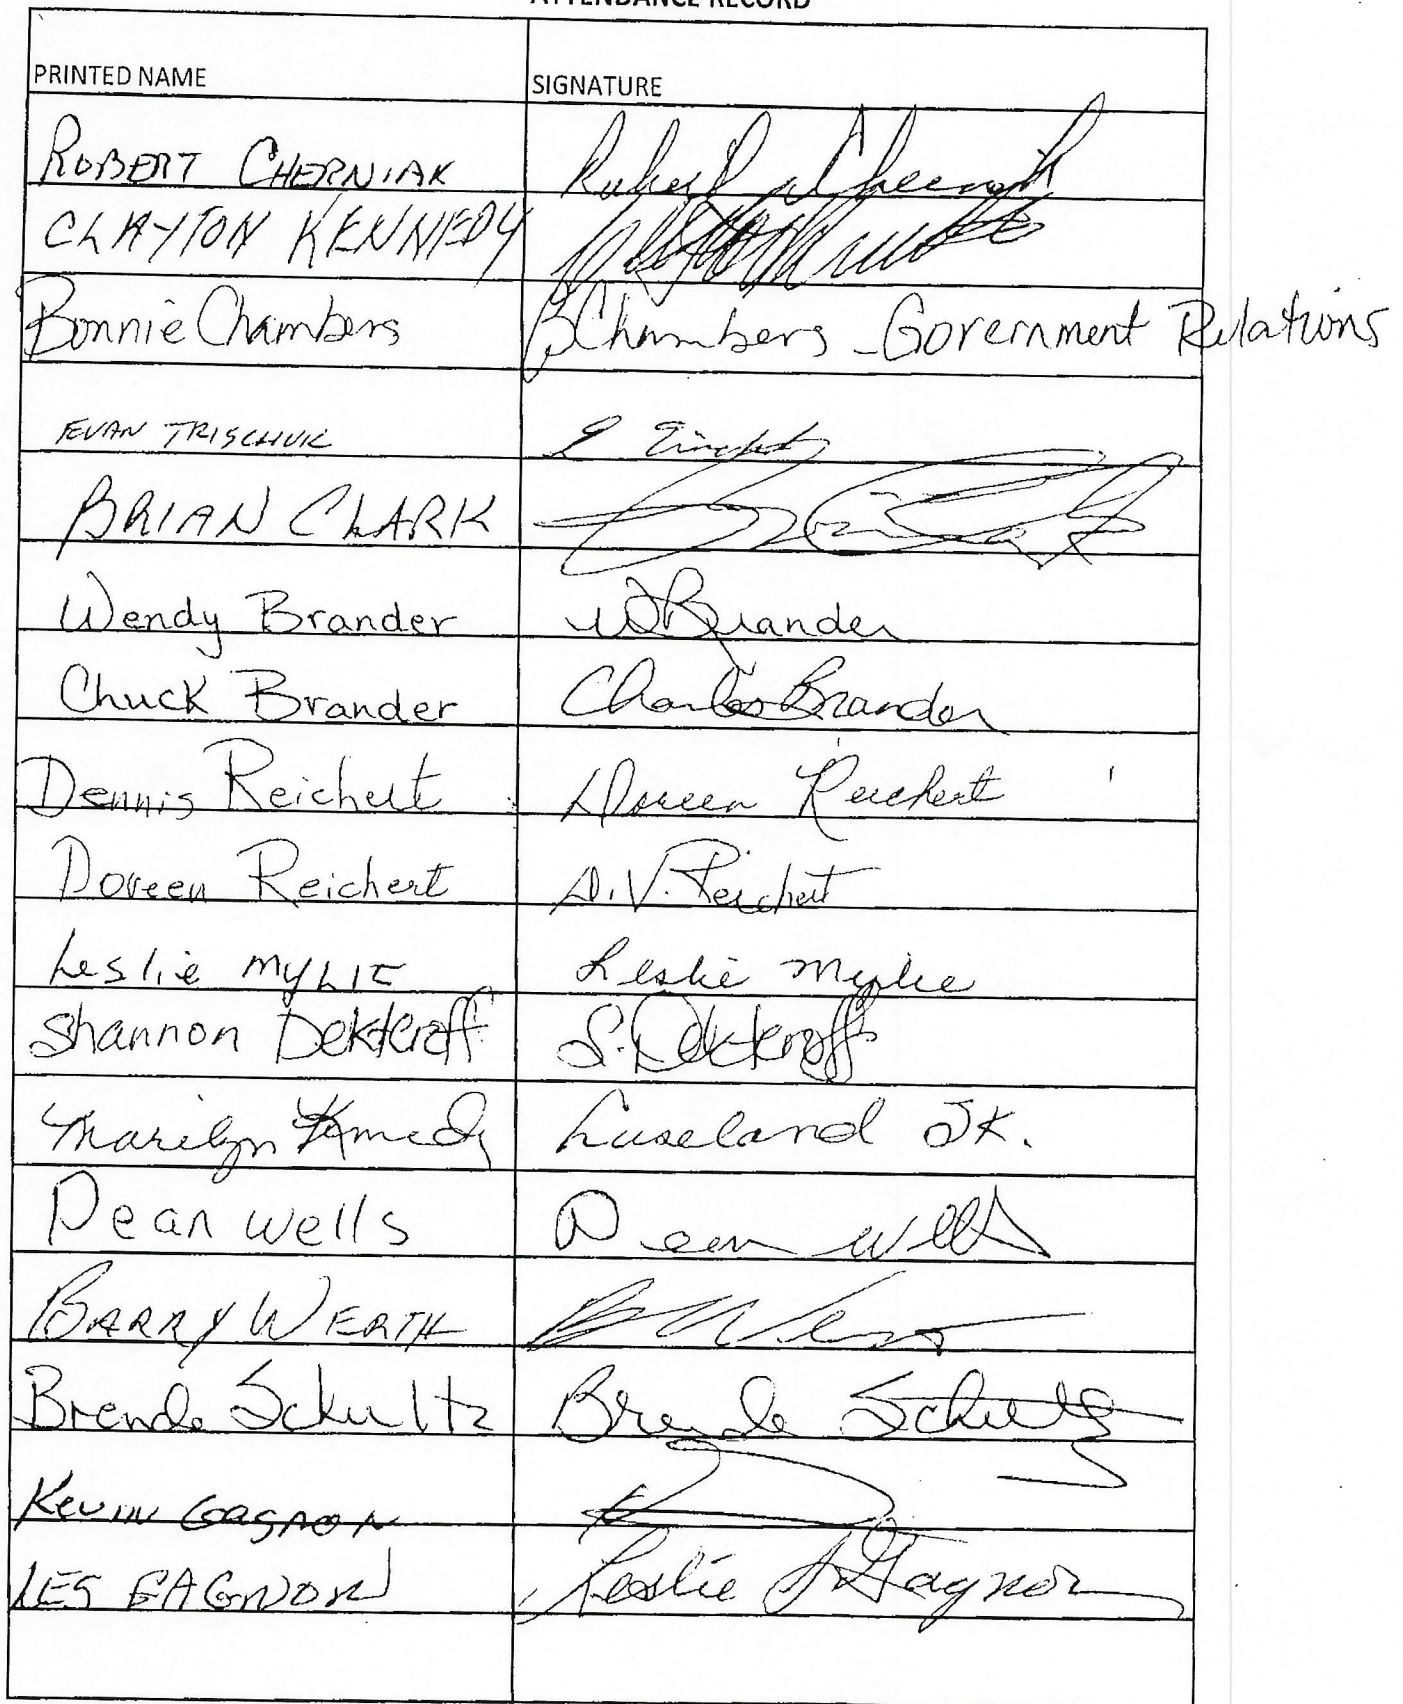 ATTENDANCE RECORD
PRINTED NAME SIGNATURE
ROBERT CHERNIAK
CLAYTON KENNEDY
Bonnie Chambers BChambers - Government Relations
EVAN TRISCHUK
BRIAN CLARK Brian Clark
Wendy Brander W Brander
Chuck Brander Charles Brander
Dennis Reichert Doreen Reichert
Doreen Reichert D.V. Reichert
Leslie MYLIE Leslie Mylie
Shannon Dekkeroff S. Dekkeroff
Marilyn Kennedy Luseland SK.
Dean Wells Dean Wells
BARRY WERTH
Brenda Schultz Brenda Schultz
Kevin Gagnon
LES GAGNON Leslie Gagnon